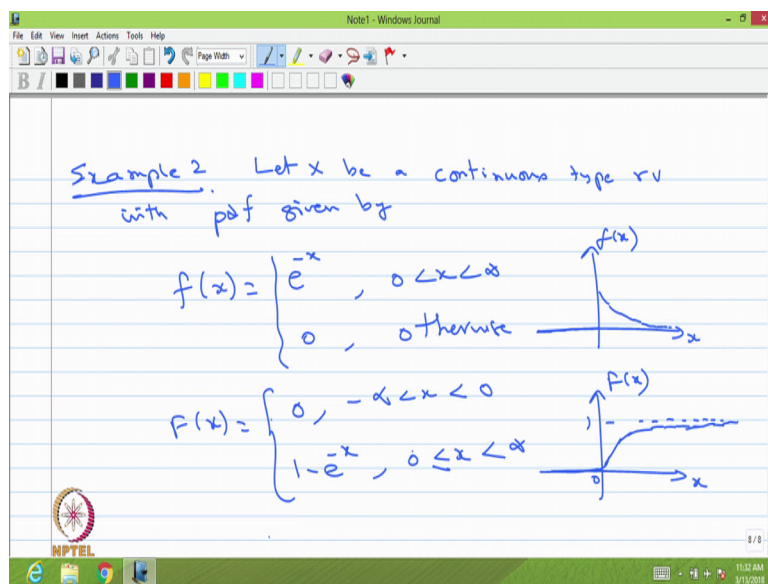 Note1 - Windows Journal
File Edit View Insert Actions Tools Help
Page Width
B I
Example 2. Let X be a continuous type rv
with pdf given by
f(x) = { e^{-x} , 0 < x < ∞
0 , otherwise
f(x)
x
F(x) = { 0 , -∞ < x < 0
1 - e^{-x} , 0 ≤ x < ∞
F(x)
1
0
x
NPTEL
8/8
11:32 AM
3/13/2018